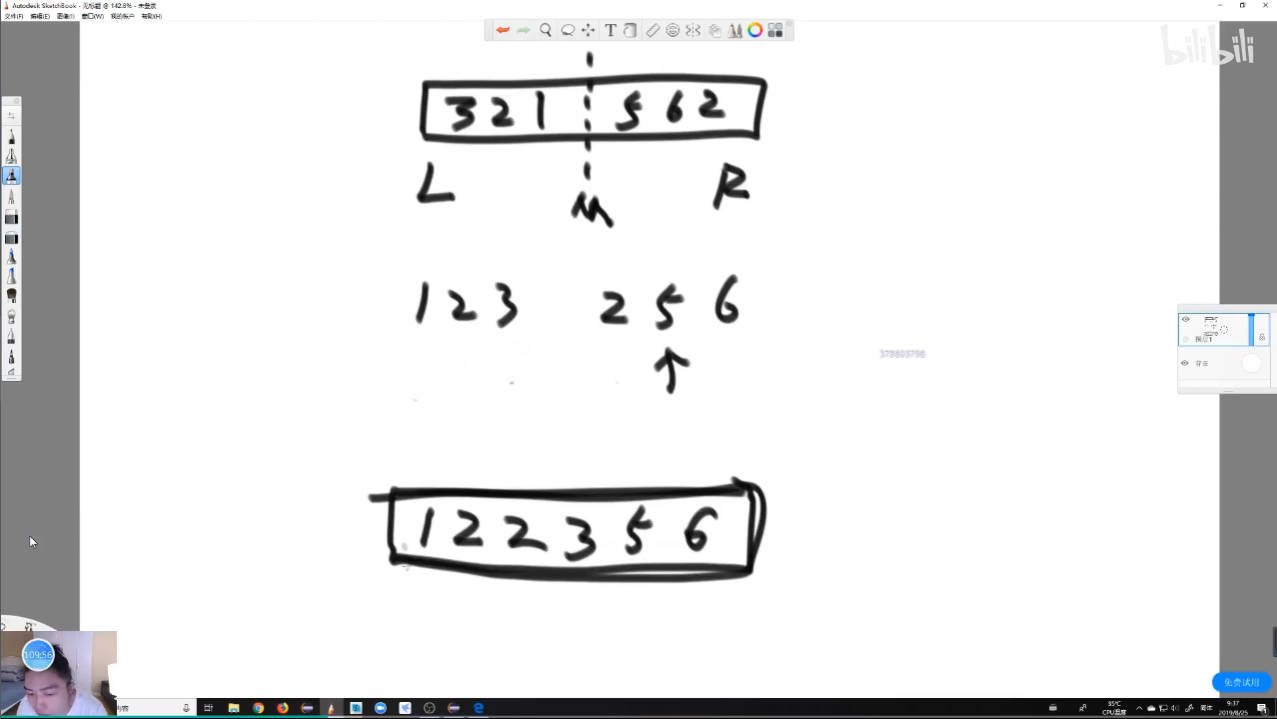 Autodesk SketchBook - 无标题 @ 142.8% - 未登录
文件(F) 编辑(E) 图像(I) 窗口(W) 我的帐户 帮助(H)
bilibili
3 2 1 5 6 2
L M R
1 2 3 2 5 6
378603796
图层1
背景
1 2 2 3 5 6
109:56
免费试用
内容
35℃
CPU温度
简体
9:37
2019/8/25